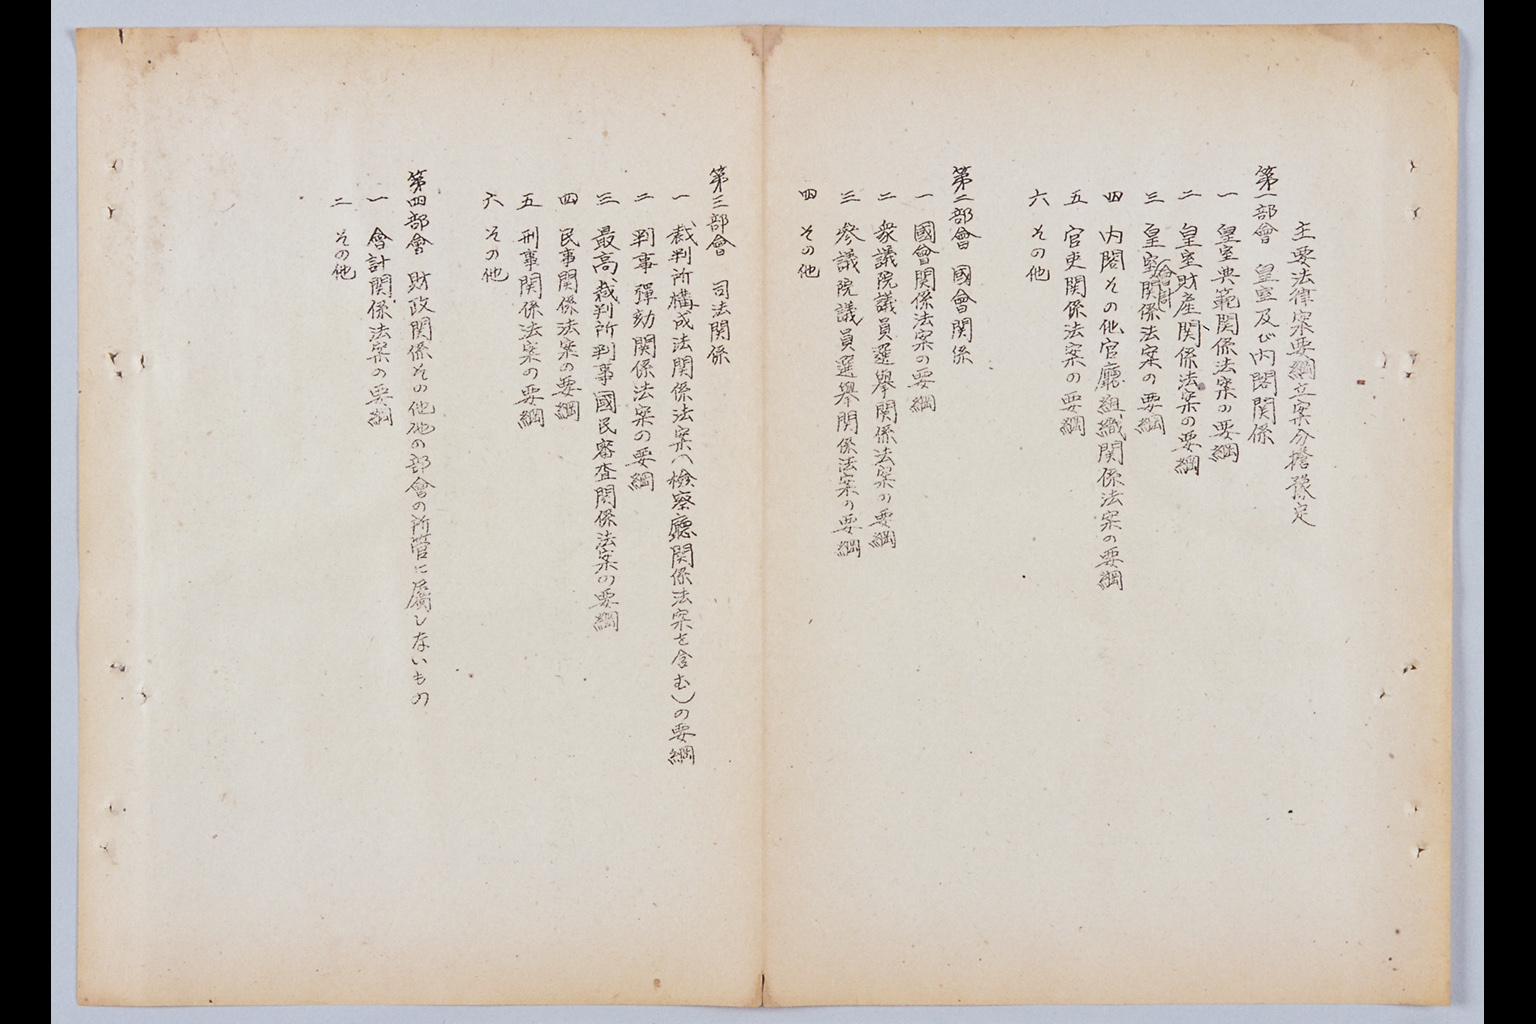 主要法律案要綱立案分擔豫定
第一部會 皇室及び内閣関係
一 皇室典範関係法案の要綱
二 皇室財産関係法案の要綱
三 皇室會計関係法案の要綱
四 内閣その他官廳組織関係法案の要綱
五 官吏関係法案の要綱
六 その他
第二部會 國會関係
一 國會関係法案の要綱
二 衆議院議員選擧関係法案の要綱
三 参議院議員選擧関係法案の要綱
四 その他
第三部會 司法関係
一 裁判所構成法関係法案(檢察廳関係法案を含む)の要綱
二 判事彈劾関係法案の要綱
三 最高裁判所判事國民審査関係法案の要綱
四 民事関係法案の要綱
五 刑事関係法案の要綱
六 その他
第四部會 財政関係その他他の部會の所管に屬しないもの
一 會計関係法案の要綱
二 その他